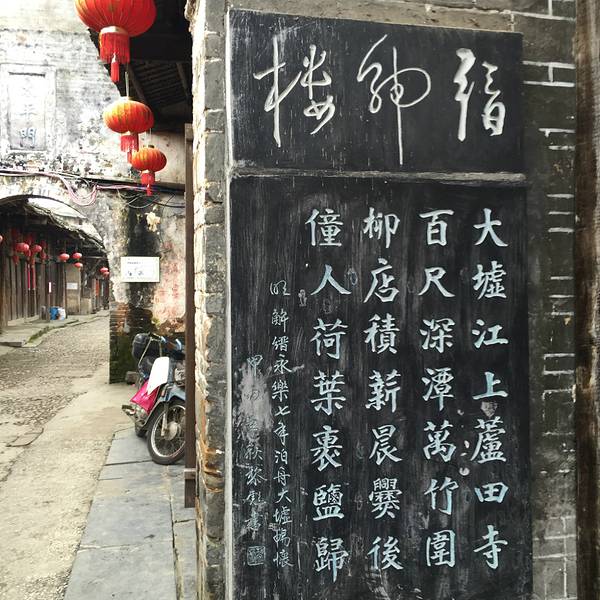 縉紳楼
大墟江上蘆田寺
百尺深潭萬竹圍
柳店積薪晨爨後
僮人荷葉裹鹽歸
明解縉永樂七年泊舟大墟抒懷